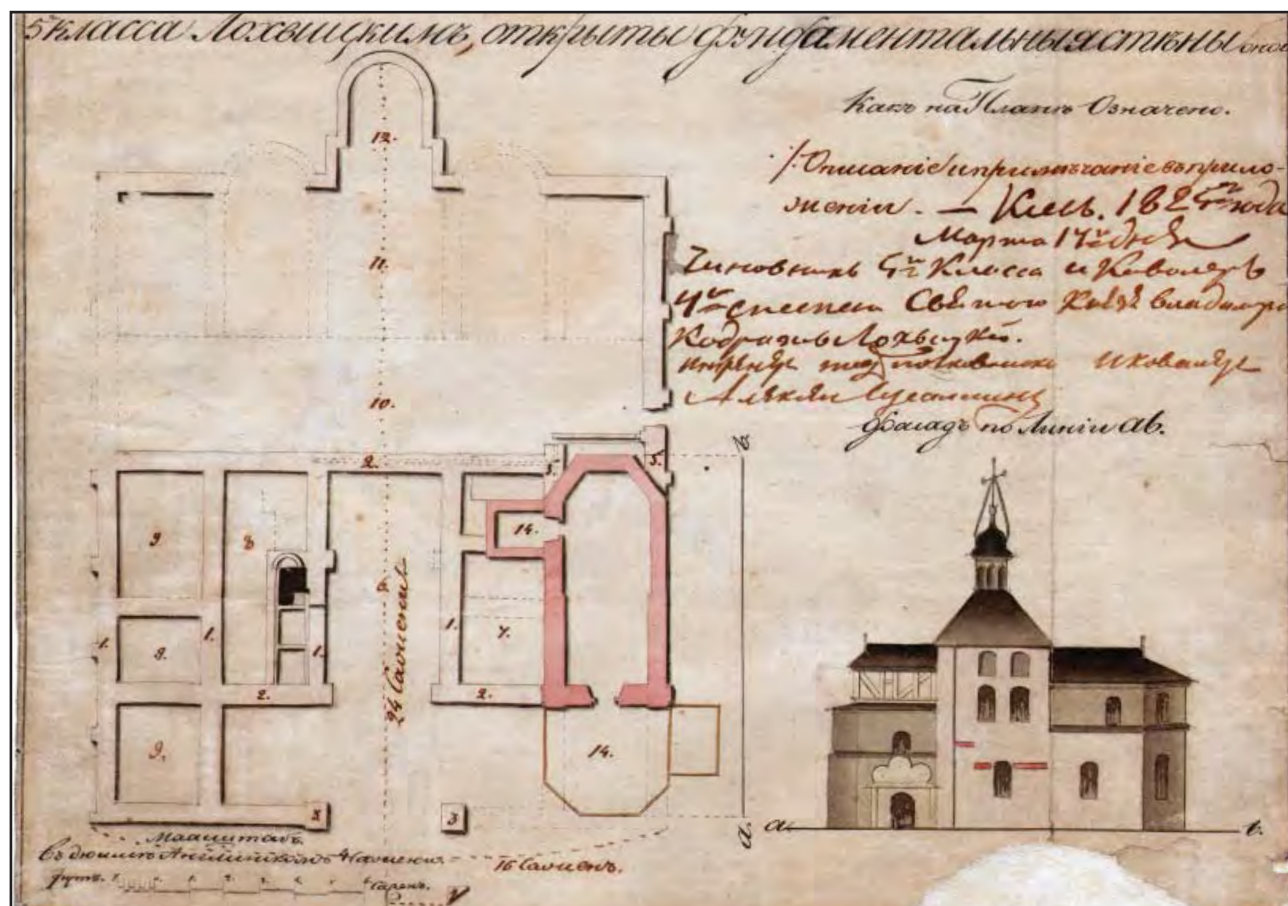 5 класса Лохвицкимъ, открыты фундаментальныя стѣны
Какъ на Планѣ Означено.
Описаніе и примѣчаніе въ прило-
женіи. — Кіевъ. 1825го года
Марта 17го дня
Чиновникъ 5го Класса и Кавалеръ
4й степени Святого Князя Владимира
Кодратъ Лохвицкій.
Фасадъ по Линіи ав.
12.
11.
10.
2.
5.
5.
в.
9.
8.
14.
1.
1.
9.
1.
1.
7.
24 Сажени
2.
2.
9.
14.
3
а.
а.
в.
Маштабъ
въ дюймѣ Англинскомъ 4 Сажени.
16 Саженъ.
футъ.
Сажен.